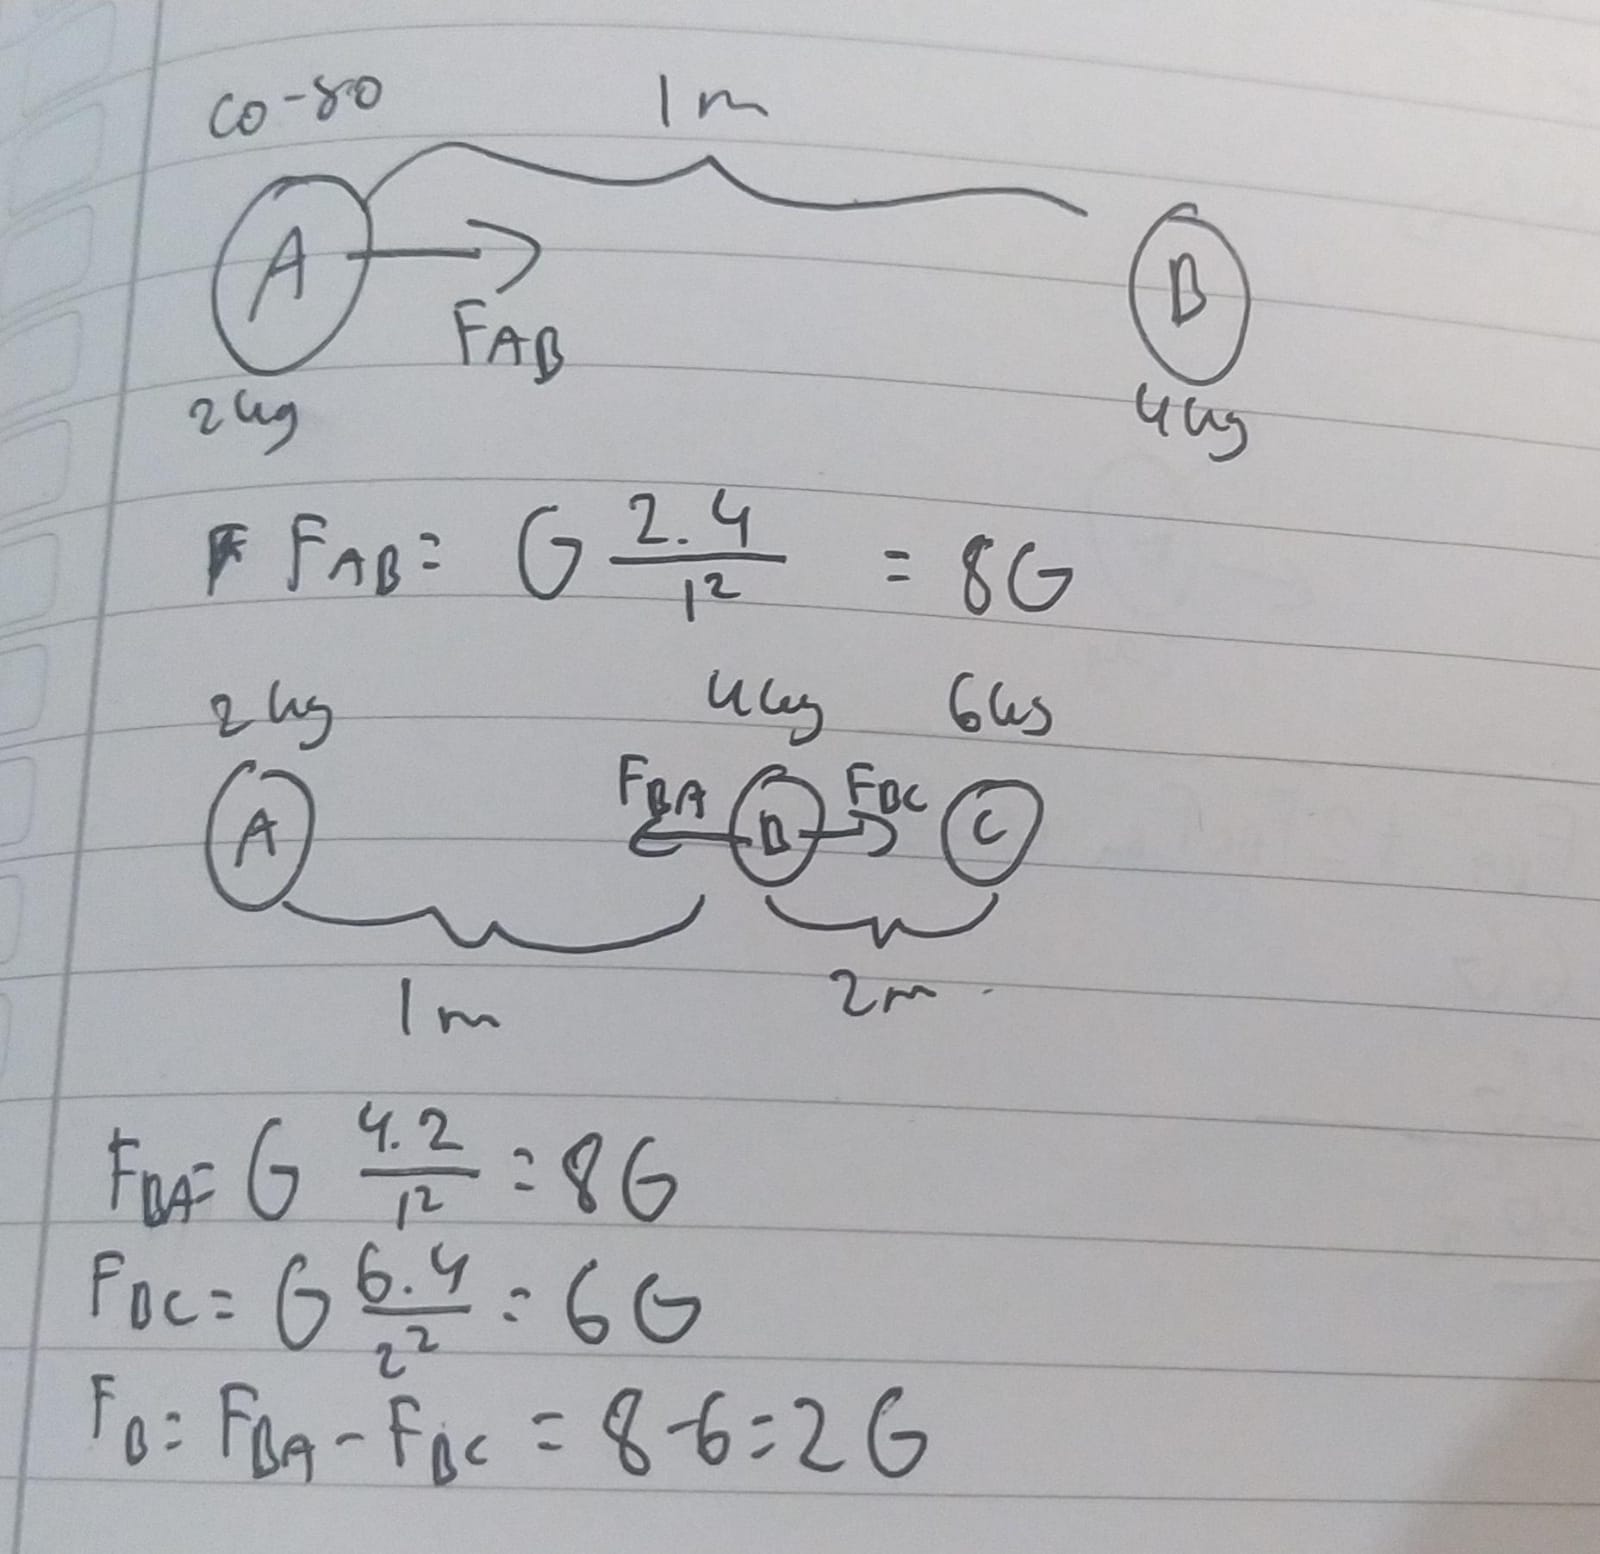 co-so
1m
A
B
F_AB
2kg
4kg
F_AB = G 2.4/1² = 8G
2kg 4kg 6kg
A F_BA B F_BC C
1m 2m
F_BA = G 4.2/1² = 8G
F_BC = G 6.4/2² = 6G
F_B = F_BA - F_BC = 8-6 = 2G